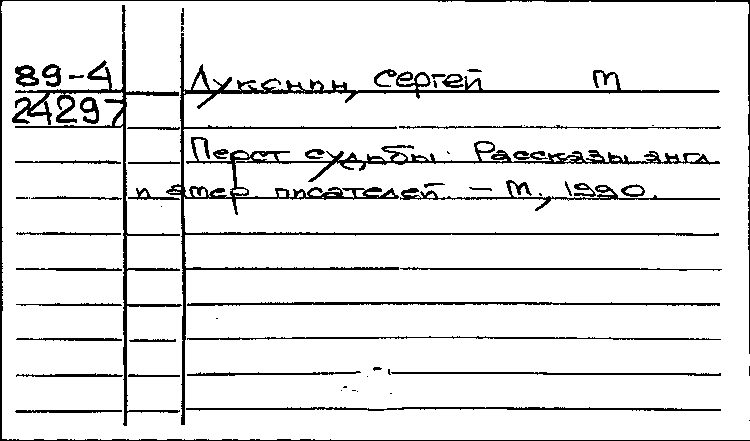 89-4 Луканин, Сергей т
24297
Перст судьбы. Рассказы англ.
и амер. писателей. - М., 1990.